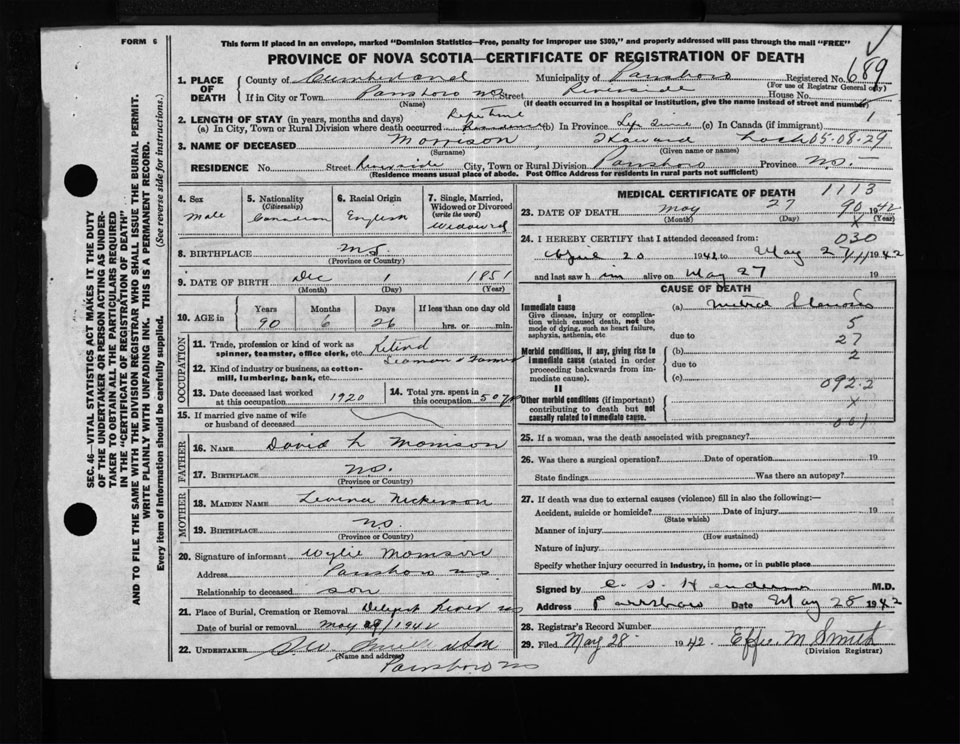 FORM 6
This form if placed in an envelope, marked "Dominion Statistics—Free, penalty for improper use $300," and properly addressed will pass through the mail "FREE"
PROVINCE OF NOVA SCOTIA—CERTIFICATE OF REGISTRATION OF DEATH
1. PLACE OF DEATH
County of Cumberland Municipality of Parrsboro Registered No. 689
(For use of Registrar General only)
If in City or Town Parrsboro NS Street Riverside House No.
(Name) (If death occurred in a hospital or institution, give the name instead of street and number)
2. LENGTH OF STAY (in years, months and days)
(a) In City, Town or Rural Division where death occurred (b) In Province Life Time (c) In Canada (if immigrant)
3. NAME OF DECEASED Morrison, Howard 05-08-29
(Surname) (Given name or names)
RESIDENCE No. Street Riverside City, Town or Rural Division Parrsboro Province N.S.
(Residence means usual place of abode. Post Office Address for residents in rural parts not sufficient)
4. Sex
Male
5. Nationality
(Citizenship)
Canadian
6. Racial Origin
English
7. Single, Married, Widowed or Divorced
(write the word)
Widowed
8. BIRTHPLACE N.S.
(Province or Country)
9. DATE OF BIRTH Dec 1 1851
(Month) (Day) (Year)
10. AGE in Years Months Days If less than one day old
90 6 26 hrs. or min.
OCCUPATION
11. Trade, profession or kind of work as spinner, teamster, office clerk, etc. Retired
Seaman & Farmer
12. Kind of industry or business, as cotton-mill, lumbering, bank, etc.
13. Date deceased last worked at this occupation 1920
14. Total yrs. spent in this occupation 50 yrs
15. If married give name of wife or husband of deceased
FATHER
16. NAME David L Morrison
17. BIRTHPLACE N.S.
(Province or Country)
MOTHER
18. MAIDEN NAME Levina Nickerson
19. BIRTHPLACE N.S.
(Province or Country)
20. Signature of informant Wylie Morrison
Address Parrsboro N.S.
Relationship to deceased son
21. Place of Burial, Cremation or Removal River NS
Date of burial or removal May 29/1942
22. UNDERTAKER
(Name and address)
Parrsboro NS
MEDICAL CERTIFICATE OF DEATH 1113
23. DATE OF DEATH May 27 1942
(Month) (Day) (Year)
90
X
24. I HEREBY CERTIFY that I attended deceased from: 030
April 20 1942 to May 27 1942
and last saw him alive on May 27 19
CAUSE OF DEATH
I
Immediate cause (a) Mitral Stenosis
Give disease, injury or complication which caused death, not the mode of dying, such as heart failure, asphyxia, asthenia, etc
5
due to 27
Morbid conditions, if any, giving rise to immediate cause (stated in order proceeding backwards from immediate cause). (b) 2
due to
(c) 092.2
II
Other morbid conditions (if important) contributing to death but not causally related to immediate cause. X
001
25. If a woman, was the death associated with pregnancy?
26. Was there a surgical operation? Date of operation 19
State findings Was there an autopsy?
27. If death was due to external causes (violence) fill in also the following:—
Accident, suicide or homicide? Date of injury 19
(State which)
Manner of injury
(How sustained)
Nature of injury
Specify whether injury occurred in industry, in home, or in public place
Signed by C. S. Henderson M.D.
Address Parrsboro Date May 28 1942
28. Registrar's Record Number
29. Filed May 28 1942 Effie M Smith
(Division Registrar)
SEC. 46—VITAL STATISTICS ACT MAKES IT THE DUTY
OF THE UNDERTAKER OR PERSON ACTING AS UNDER-
TAKER TO OBTAIN ALL THE PARTICULARS REQUIRED
IN THE "CERTIFICATE OF REGISTRATION OF DEATH"
AND TO FILE THE SAME WITH THE DIVISION REGISTRAR WHO SHALL ISSUE THE BURIAL PERMIT.
WRITE PLAINLY WITH UNFADING INK. THIS IS A PERMANENT RECORD.
Every item of information should be carefully supplied. (See reverse side for instructions.)